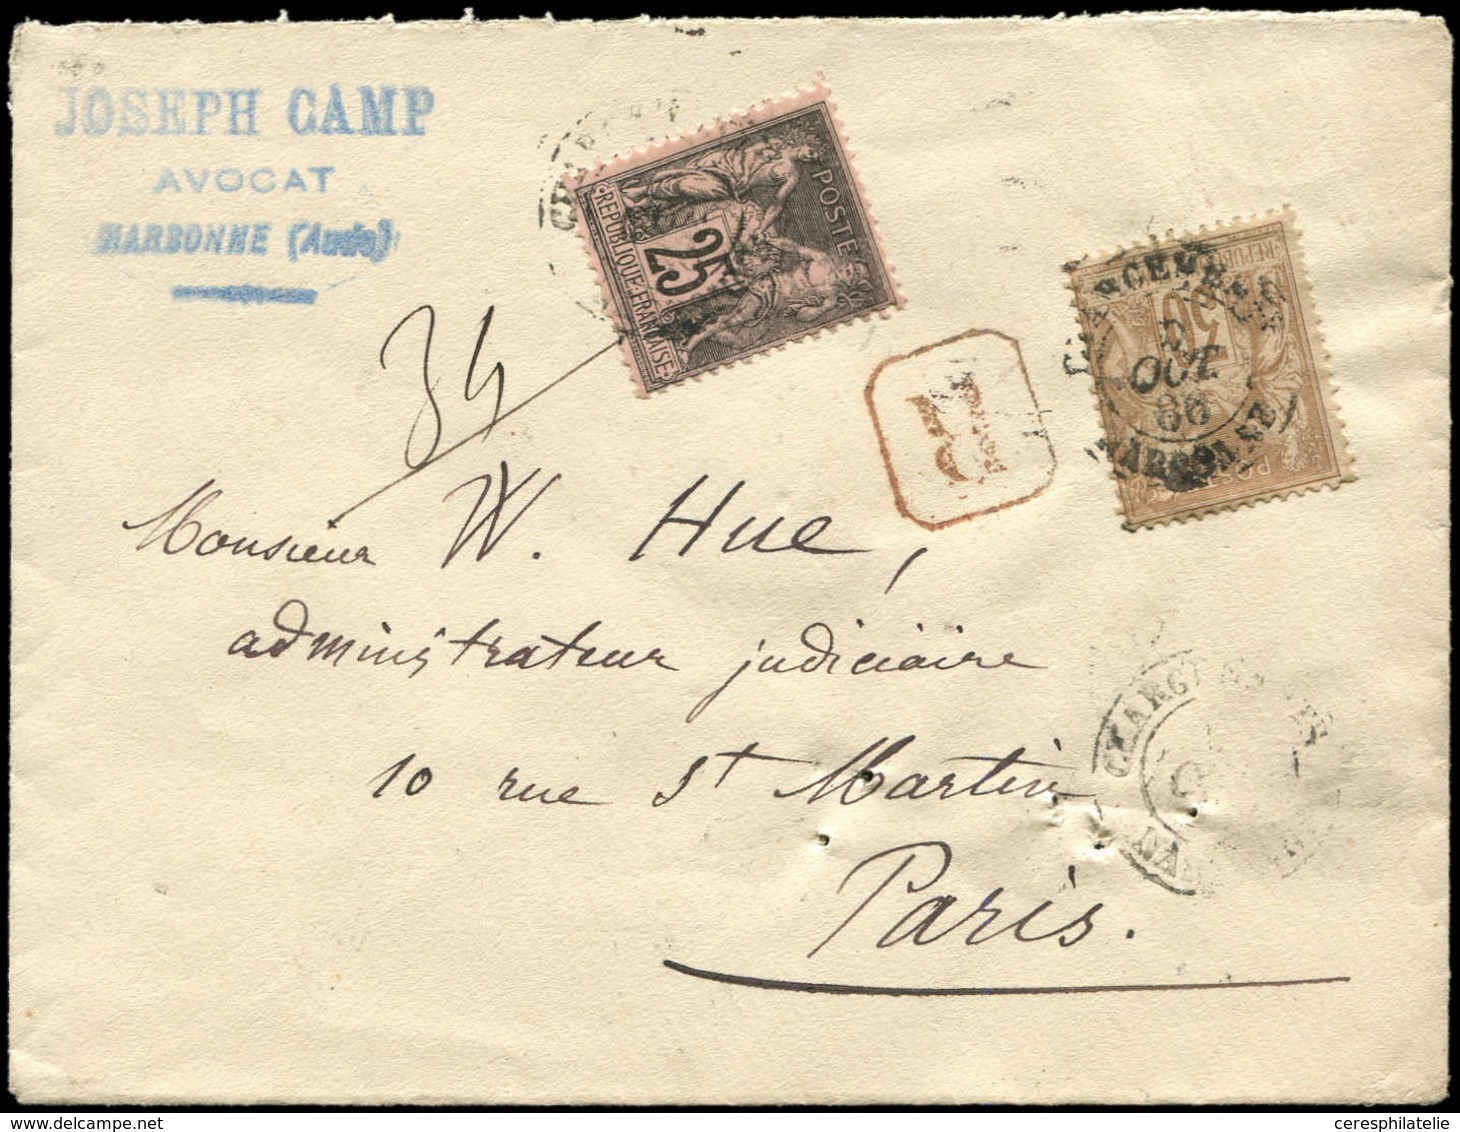 JOSEPH CAMP
AVOCAT
NARBONNE (Aude)
POSTE
25
REPUBLIQUE FRANÇAISE
34
R
CHARGEMENTS
OCT.
86
NARBONNE
30
Monsieur W. Hue,
administrateur judiciaire
10 rue St Martin
Paris.
CHARGEMENTS
ceresphilatelie